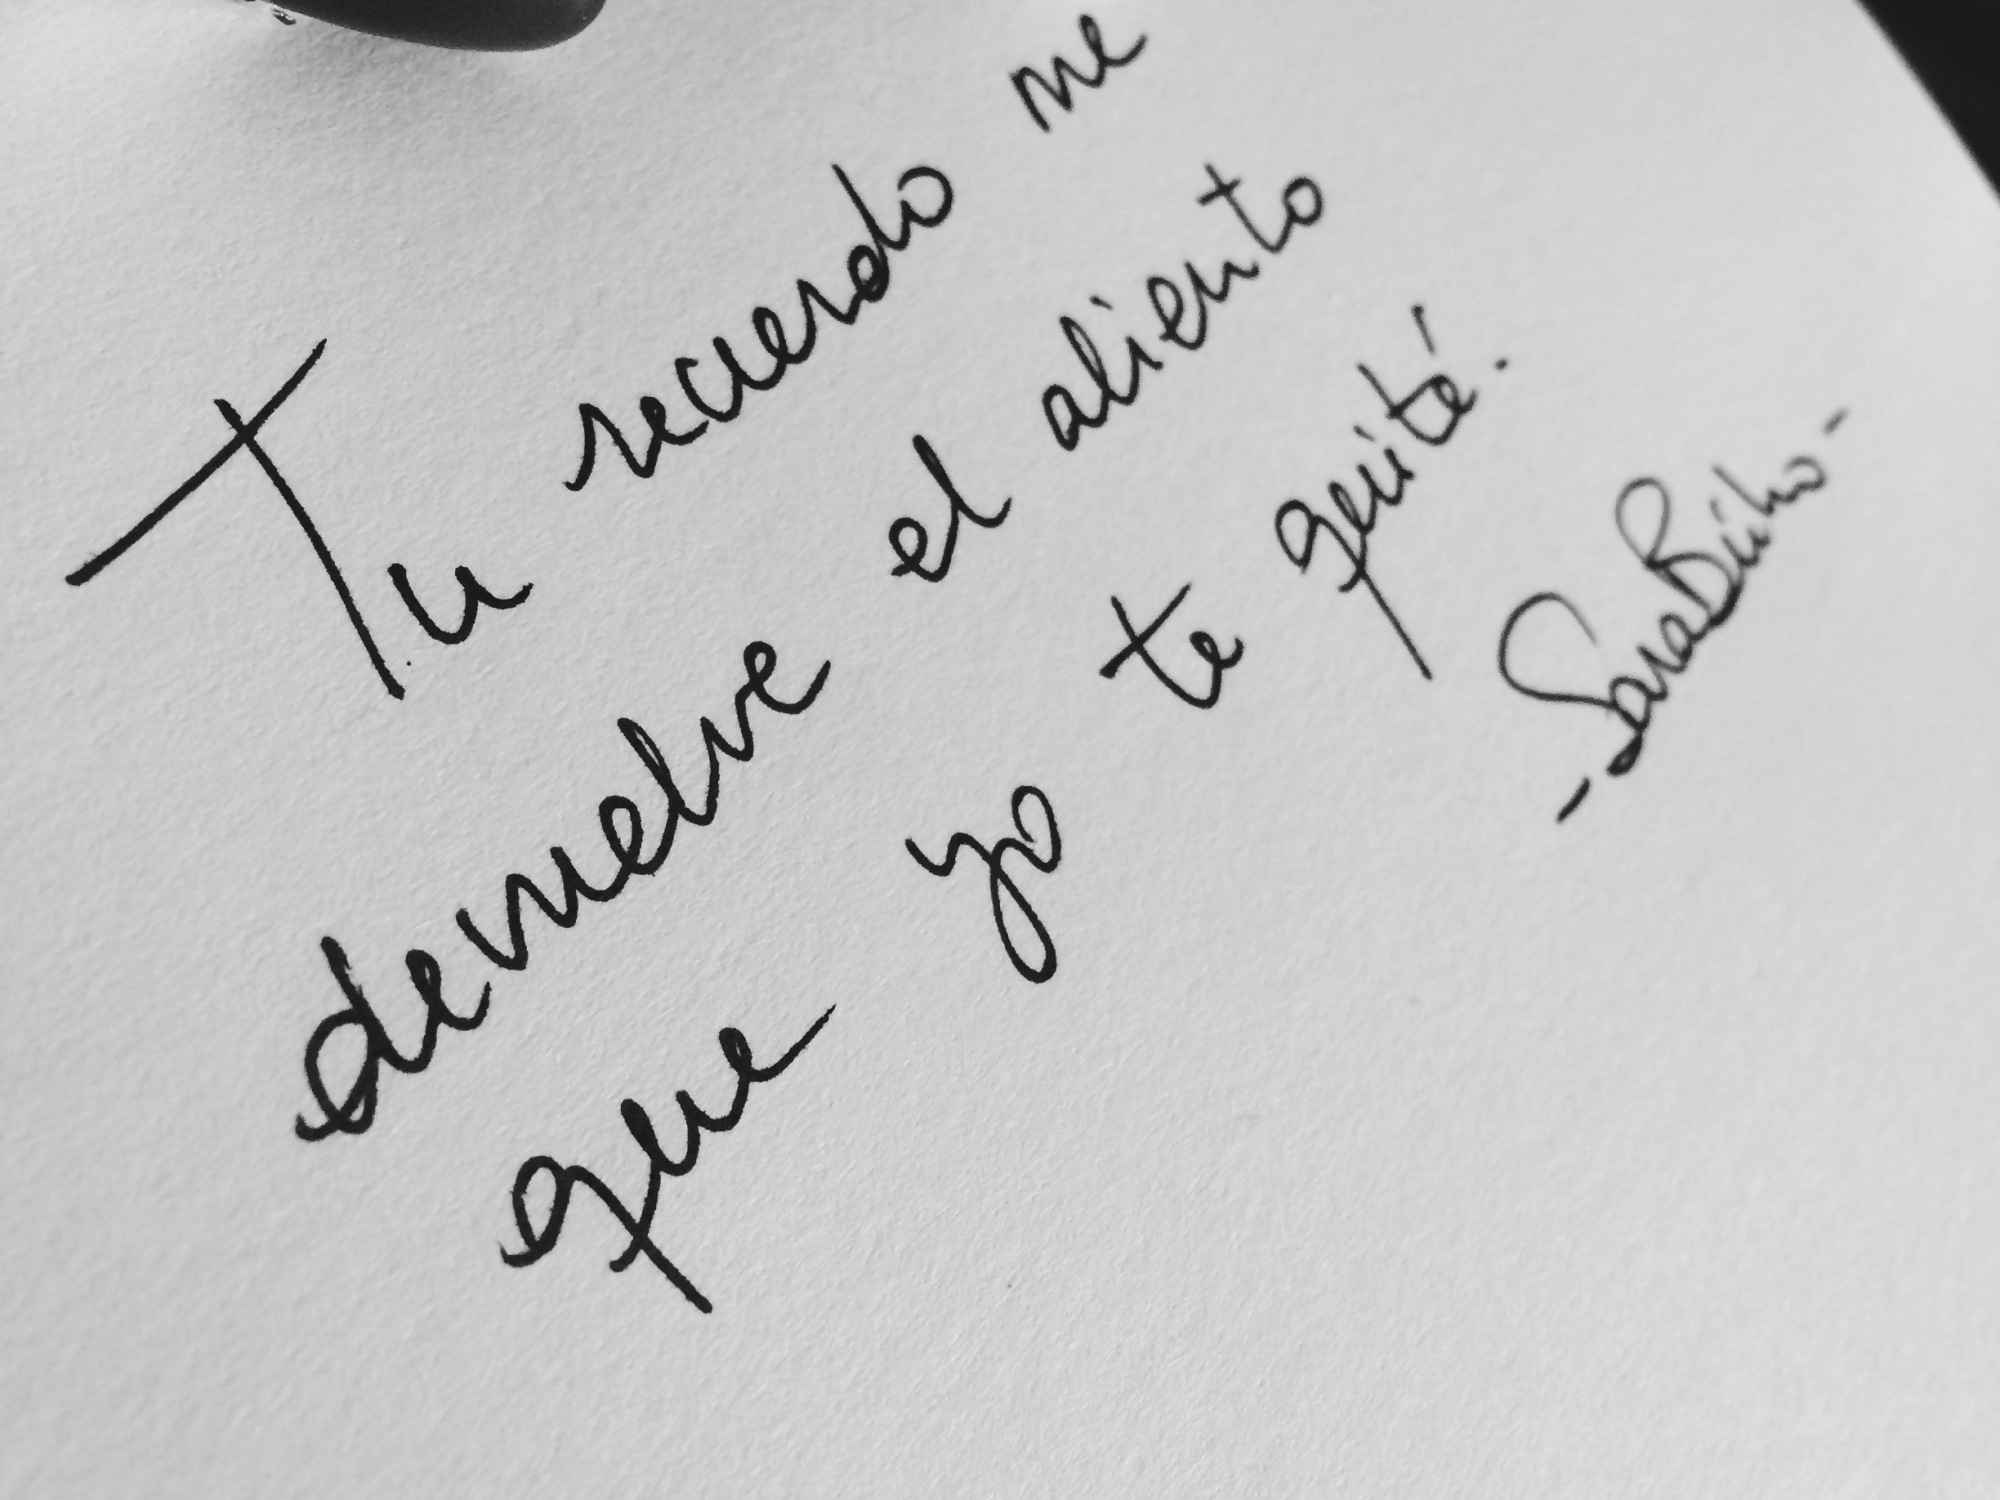 Tu recuerdo me
devuelve el aliento
que yo te quité.
-SaraBúho-